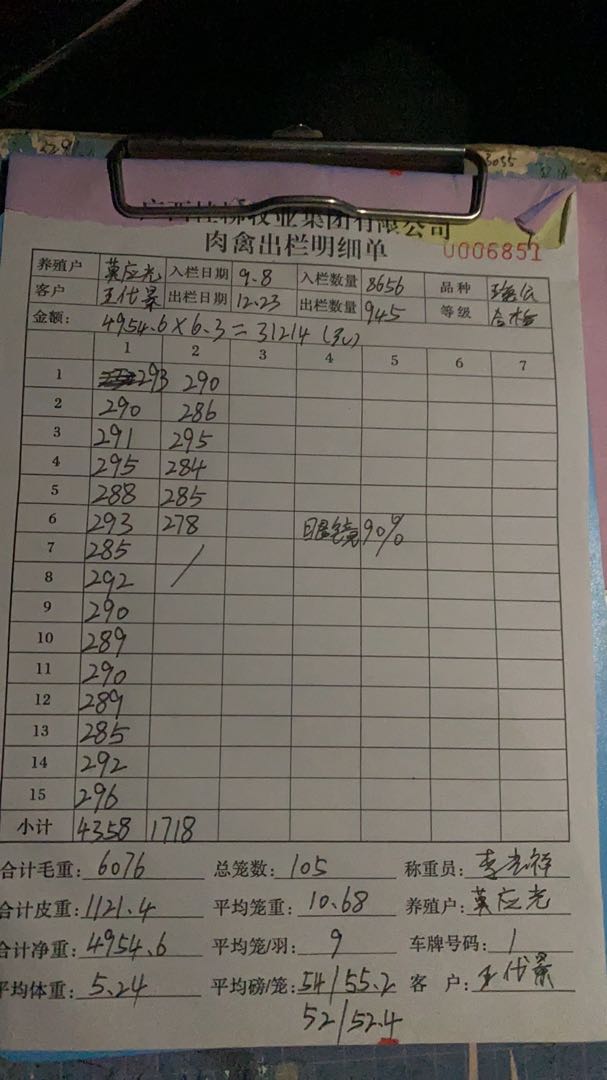 广西桂柳牧业集团有限公司
肉禽出栏明细单 U006851
养殖户 黄应光 入栏日期 9.8 入栏数量 8656 品种
客户 王代景 出栏日期 12.23 出栏数量 945 等级 合格
金额: 4954.6×6.3=31214(元)
1 2 3 4 5 6 7
1 293 290
2 290 286
3 291 295
4 295 284
5 288 285
6 293 278 眼镜90%
7 285 /
8 292
9 290
10 289
11 290
12 289
13 285
14 292
15 296
小计 4358 1718
合计毛重: 6076 总笼数: 105 称重员: 李光祥
合计皮重: 1121.4 平均笼重: 10.68 养殖户: 黄应光
合计净重: 4954.6 平均笼/羽: 9 车牌号码: 1
平均体重: 5.24 平均磅/笼: 54/55.2 客 户: 王代景
52/52.4